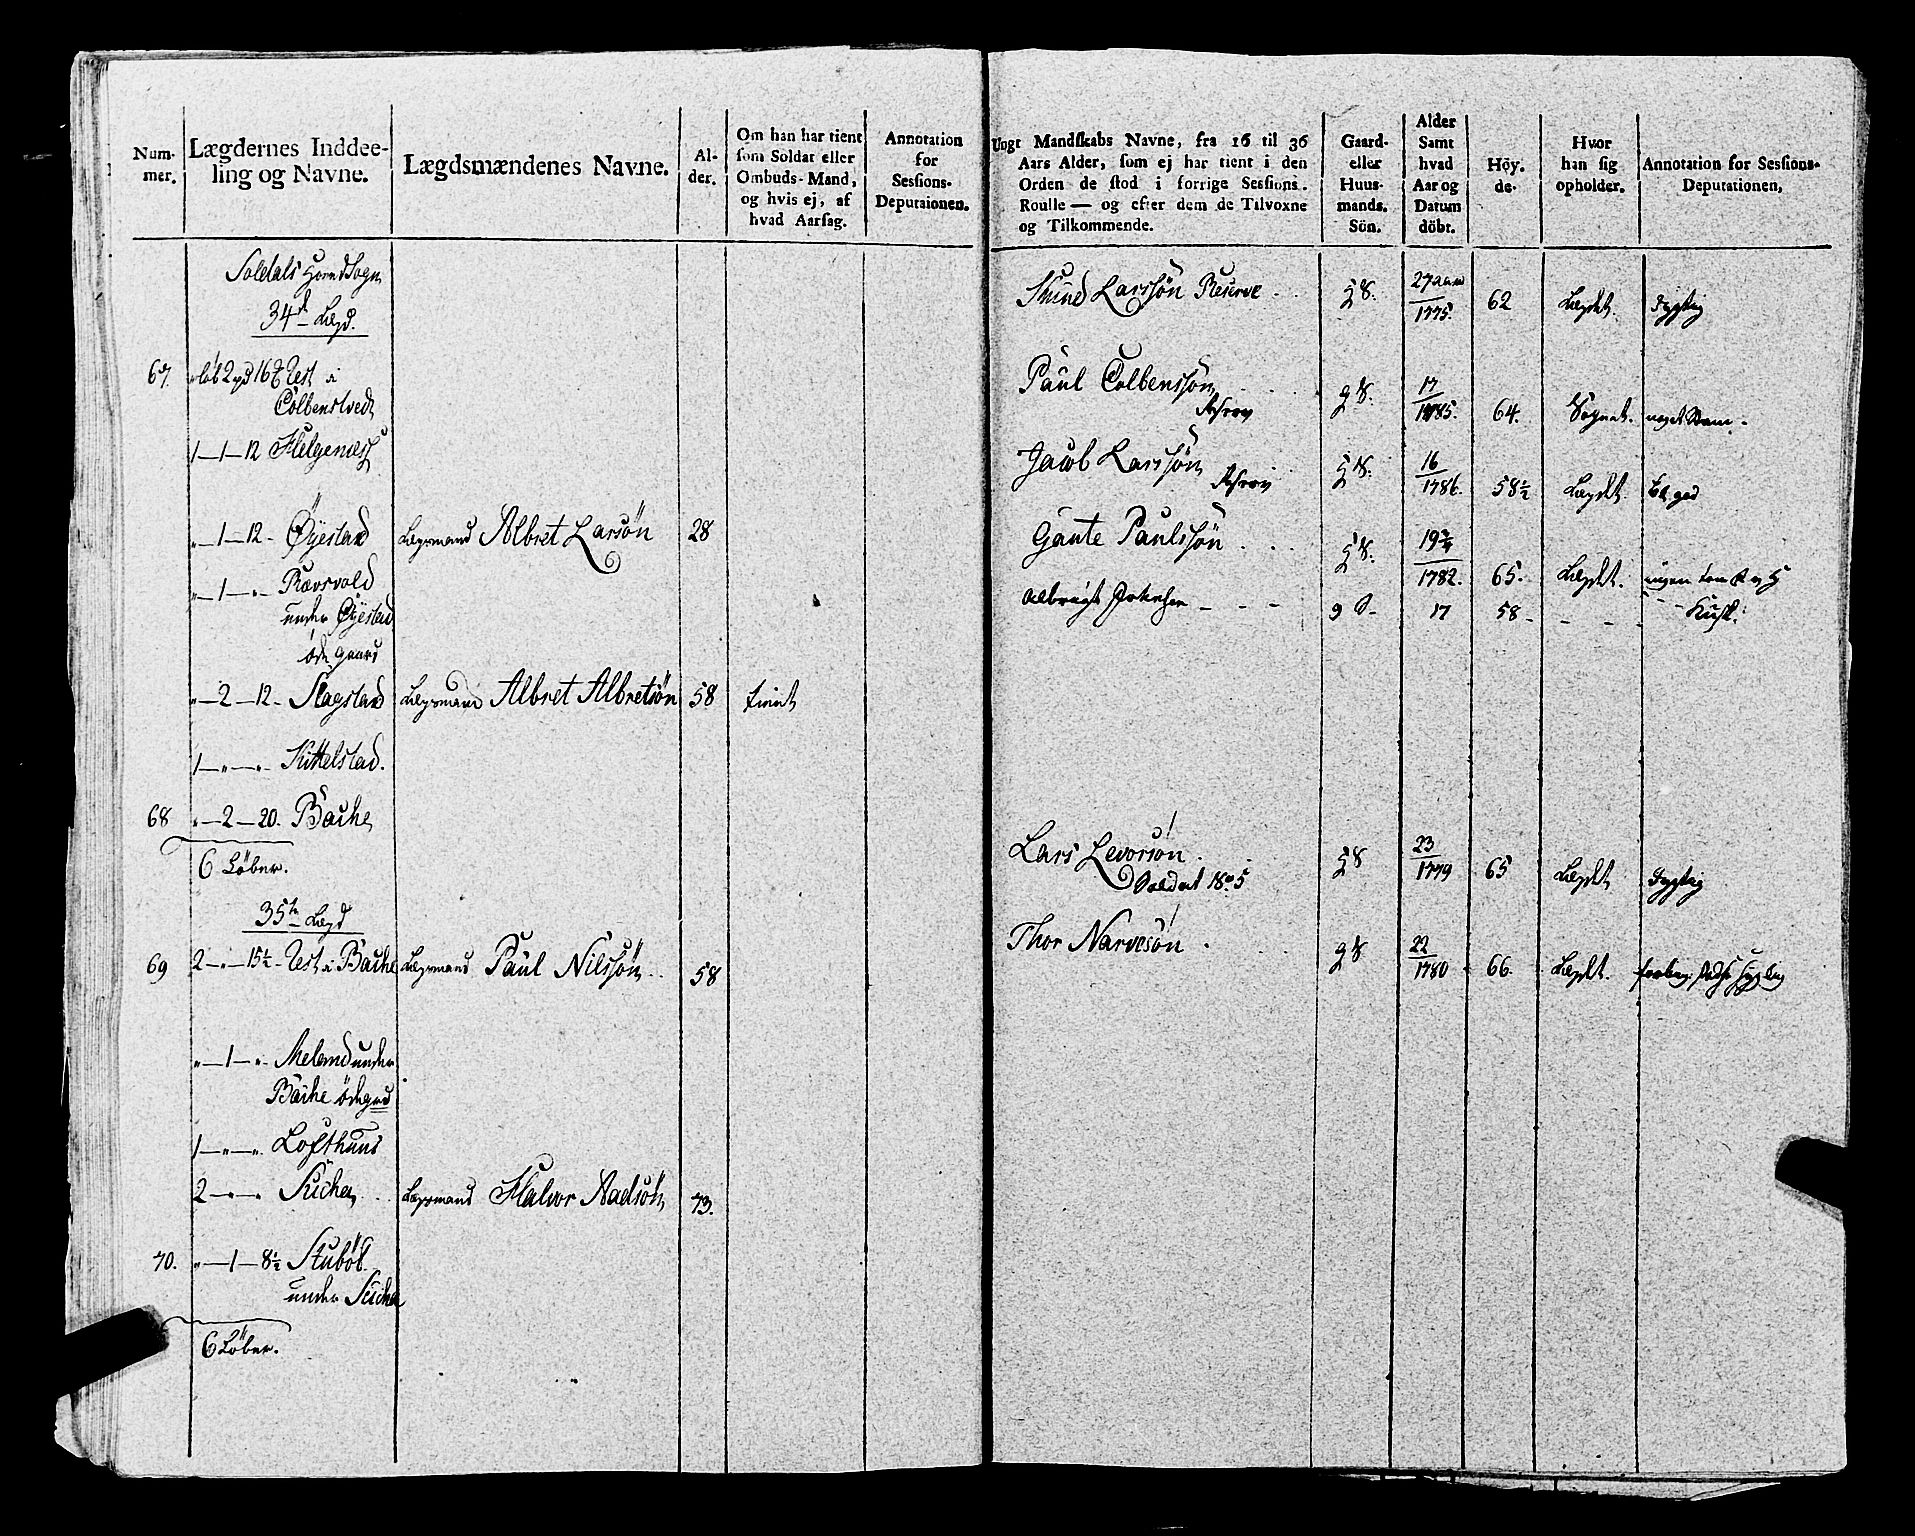 Num-
mer.
Lægdernes Inddee-
ling og Navne.
Lægdsmændenes Navne.
Al-
der.
Om han har tient
som Soldat eller
Ombuds-Mand,
og hvis ej, af
hvad Aarsag.
Annotation
for
Sessions-
Deputaionen.
Soldals HovedSogn
34de Lægd.
67. Løb 2 pd 16 Vest i
Colbenstvedt
1—1—12 Helgenæss
"—1—12- Øyestad Lægsmand Albret Larsøn 28
"—1—"- Rævsvold
under Øyestad
øde Gaard
"—2—12- Slagstad Lægsmand Albret Albretsøn 58 tient
1—"—"- Kittelstad.
68 "—2—20. Bache
6 Løber.
35te Lægd
69 2—"—15½- Vest i Bache Lægsmand Paul Nilssøn 58
"—1—"- Meland under
Bache ødegrd
1—"—"- Lofthuus
2—"—" Lægsmand Halvor Aadsøn 73.
70. "—1—8½ Stubøl
under
6 Løber.
Ungt Mandskabs Navne, fra 16 til 36
Aars Alder, som ej har tient i den
Orden de stod i forrige Sessions-
Roulle — og efter dem de Tilvoxne
og Tilkommende.
Gaard-
eller
Huus-
mands-
Sön.
Alder
Samt
hvad
Aar og
Datum
döbt.
Höy-
de-
Hvor
han sig
opholder.
Annotation for Sessions-
Deputationen,
Larssøn Reserve 27 aar
1775. 62 Lægdet. dygtig
Paul Colbenssøn 17
1785. 64. Sognet.
Jacob Larssøn 16
1786. 58½ Lægdet
Gaute Paulssøn 19
1782. 65. Lægdet.
Albrigt Johnsen - - - 17 58 - - - -
Lars Levorsøn 23
Soldat 1805 1779 65 Lægdet dygtig
Thor Narvesøn 22
1780 66. Lægdet.